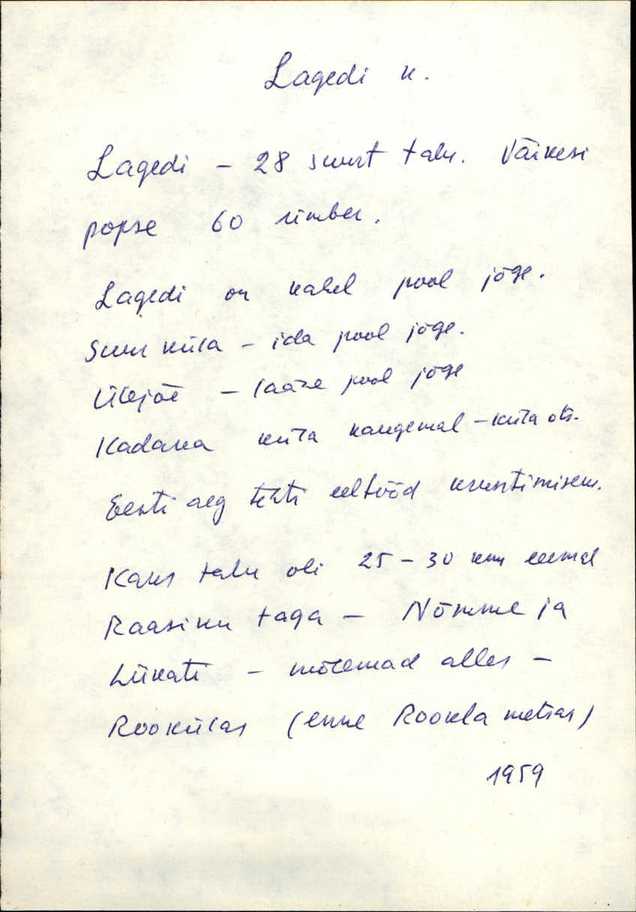 Lagedi k.
Lagedi – 28 suurt talu. Väikesi
popse 60 ümber.
Lagedi on kahel pool jõge.
Suur küla – ida pool jõge.
Ülejõe – lääne pool jõge
Kadaka küla kaugemal – küla ots.
Eesti aeg tehti eeltööd kruntimisem.
Kaks talu oli 25 – 30 km eemal
Raasiku taga – Nõmme ja
Liikati – mõlemad alles –
Rookülas (enne Rookla metsas)
1959